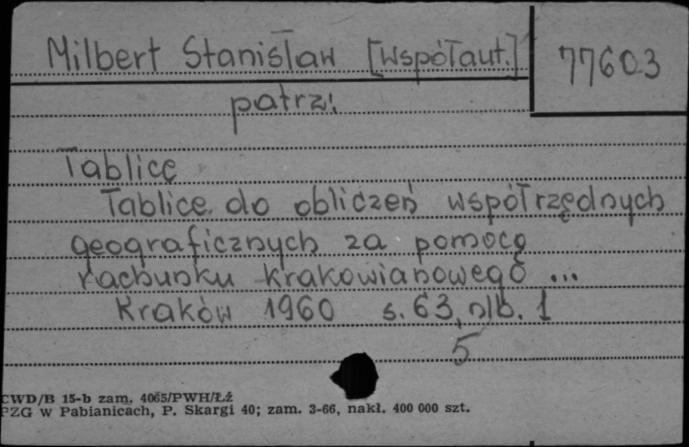 Milbert Stanisław [Współaut.] 77603
patrz:
Tablicę
Tablice do obliczeń współrzędnych
geograficznych za pomocą
rachunku krakowianowego ...
Kraków 1960 s. 63, nlb. 1
5
CWD/B 15-b zam. 4065/PWH/Łź
PZG w Pabianicach, P. Skargi 40; zam. 3-66, nakł. 400 000 szt.